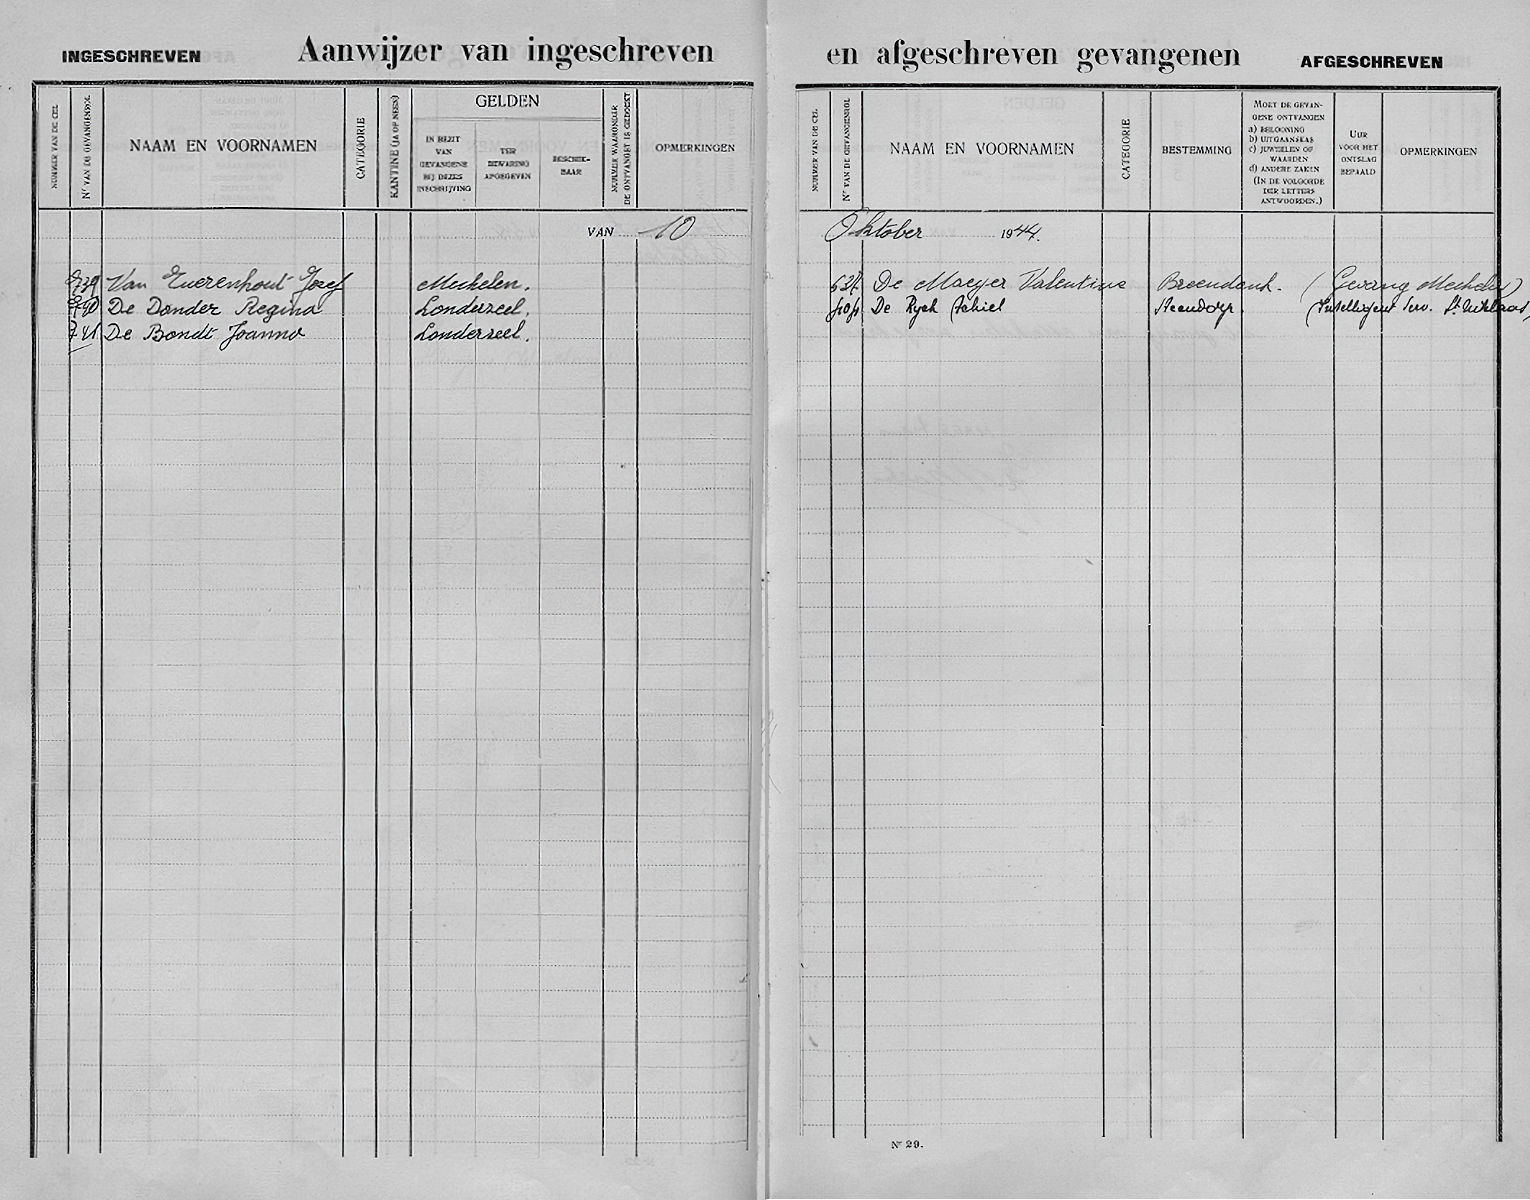 INGESCHREVEN Aanwijzer van ingeschreven en afgeschreven gevangenen AFGESCHREVEN
NUMMER VAN DE CEL
Nr VAN DE GEVANGENROL
NAAM EN VOORNAMEN
CATEGORIE
KANTINE (JA OF NEEN)
GELDEN
IN BEZIT
VAN
GEVANGENE
BIJ DEZES
INSCHRIJVING
TER
BEWARING
AFGEGEVEN
BESCHIK-
BAAR
NUMMER WAARONDER
DE ONTVANGST IS GEBOEKT
OPMERKINGEN
NUMMER VAN DE CEL
Nr VAN DE GEVANGENROL
NAAM EN VOORNAMEN
CATEGORIE
BESTEMMING
MOET DE GEVAN-
GENE ONTVANGEN
a) BELOONING
b) UITGAANSKAS
c) JUWEELEN OF
WAARDEN
d) ANDERE ZAKEN
(IN DE VOLGORDE
DER LETTERS
ANTWOORDEN.)
UUR
VOOR HET
ONTSLAG
BEPAALD
OPMERKINGEN
VAN 10 Oktober 1944.
739 Van Euerenhout Jozef Mechelen.
740 De Donder Regina Londerzeel.
741 De Bondt Joanna Londerzeel.
De Maeyer Valentine Breendonk. (Gevang Mechelen)
De Ryck Achiel Steendorp. (Intelligent Serv. St Niklaas)
Nr 29.